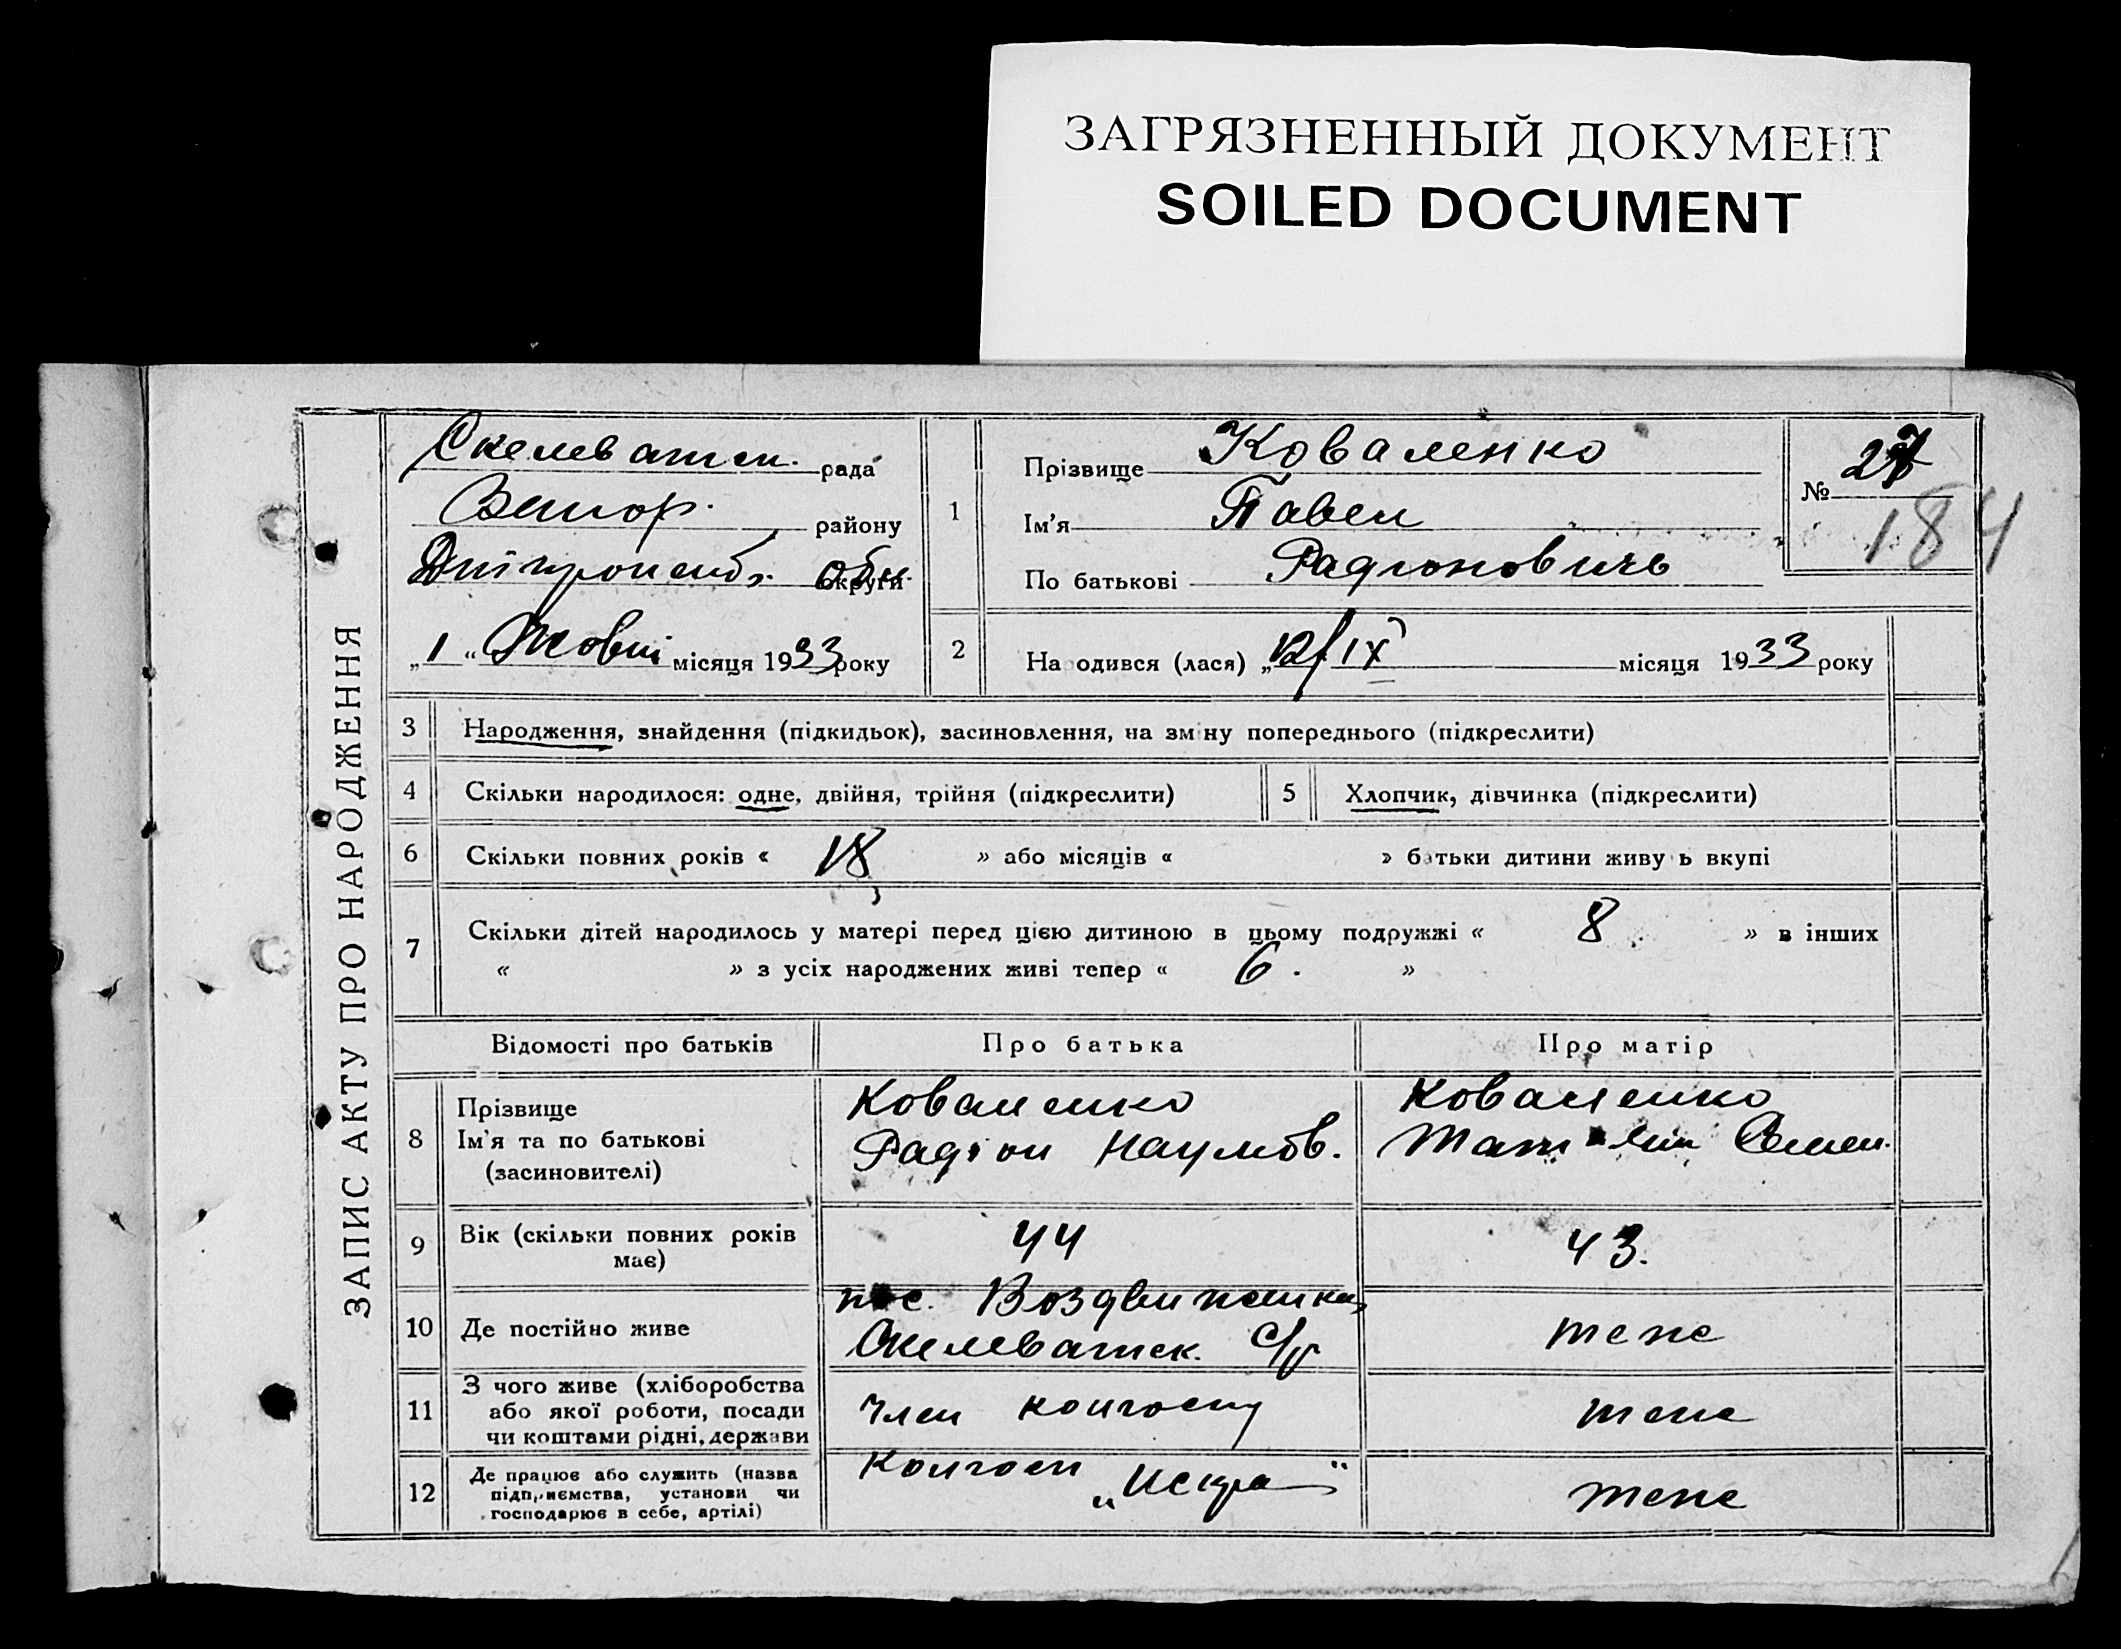 ЗАГРЯЗНЕННЫЙ ДОКУМЕНТ
SOILED DOCUMENT
ЗАПИС АКТУ ПРО НАРОДЖЕННЯ
Скелеватск. рада
Запор. району
Дніпропетр. обл. округи
„1“ Жовтн місяця 1933 року
1
Прізвище Коваленко
Ім'я Павел
По батькові Радіоновичь
№ 27
184
2
На одився (лася) „12/IX місяця 1933 року
3 Народження, знайдення (підкидьок), засиновлення, на зміну попереднього (підкреслити)
4 Скільки народилося: одне, двійня, трійня (підкреслити)
5 Хлопчик, дівчинка (підкреслити)
6 Скільки повних років « 18 » або місяців « » батьки дитини живуть вкупі
7 Скільки дітей народилось у матері перед цією дитиною в цьому подружжі « 8 » в інших
« » з усіх народжених живі тепер « 6. »
Відомості про батьків Про батька Про матір
8
Прізвище
Ім'я та по батькові
(засиновителі)
Коваленко
Радіон Наумов.
Коваленко
Семен.
9
Вік (скільки повних років
має)
44
43.
10 Де постійно живе
пос. Воздвиженка
Скелеватск. С/р
теже
11
З чого живе (хліборобства
або якої роботи, посади
чи коштами рідні, держави
Член колгоспу
теже
12
Де працює або служить (назва
підприємства, установи чи
господарює в себе, артілі)
Колгосп
„Искра“
теже